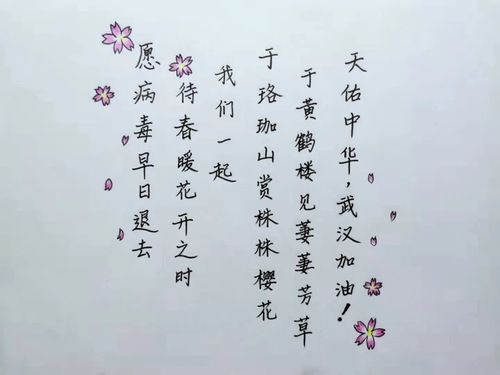 愿病毒早日退去
待春暖花开之时
我们一起
于珞珈山赏株株樱花
于黄鹤楼见萋萋芳草
天佑中华，武汉加油！